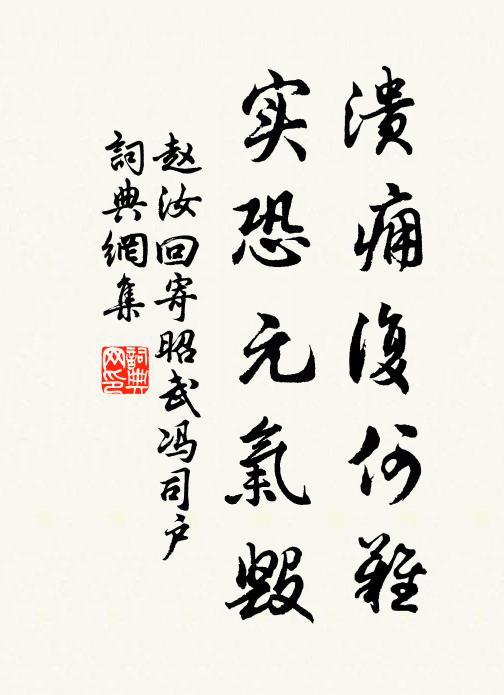 潰痈復何難
实恐元氣毀
赵汝回寄昭武冯司户
詞典網集
詞典
网印